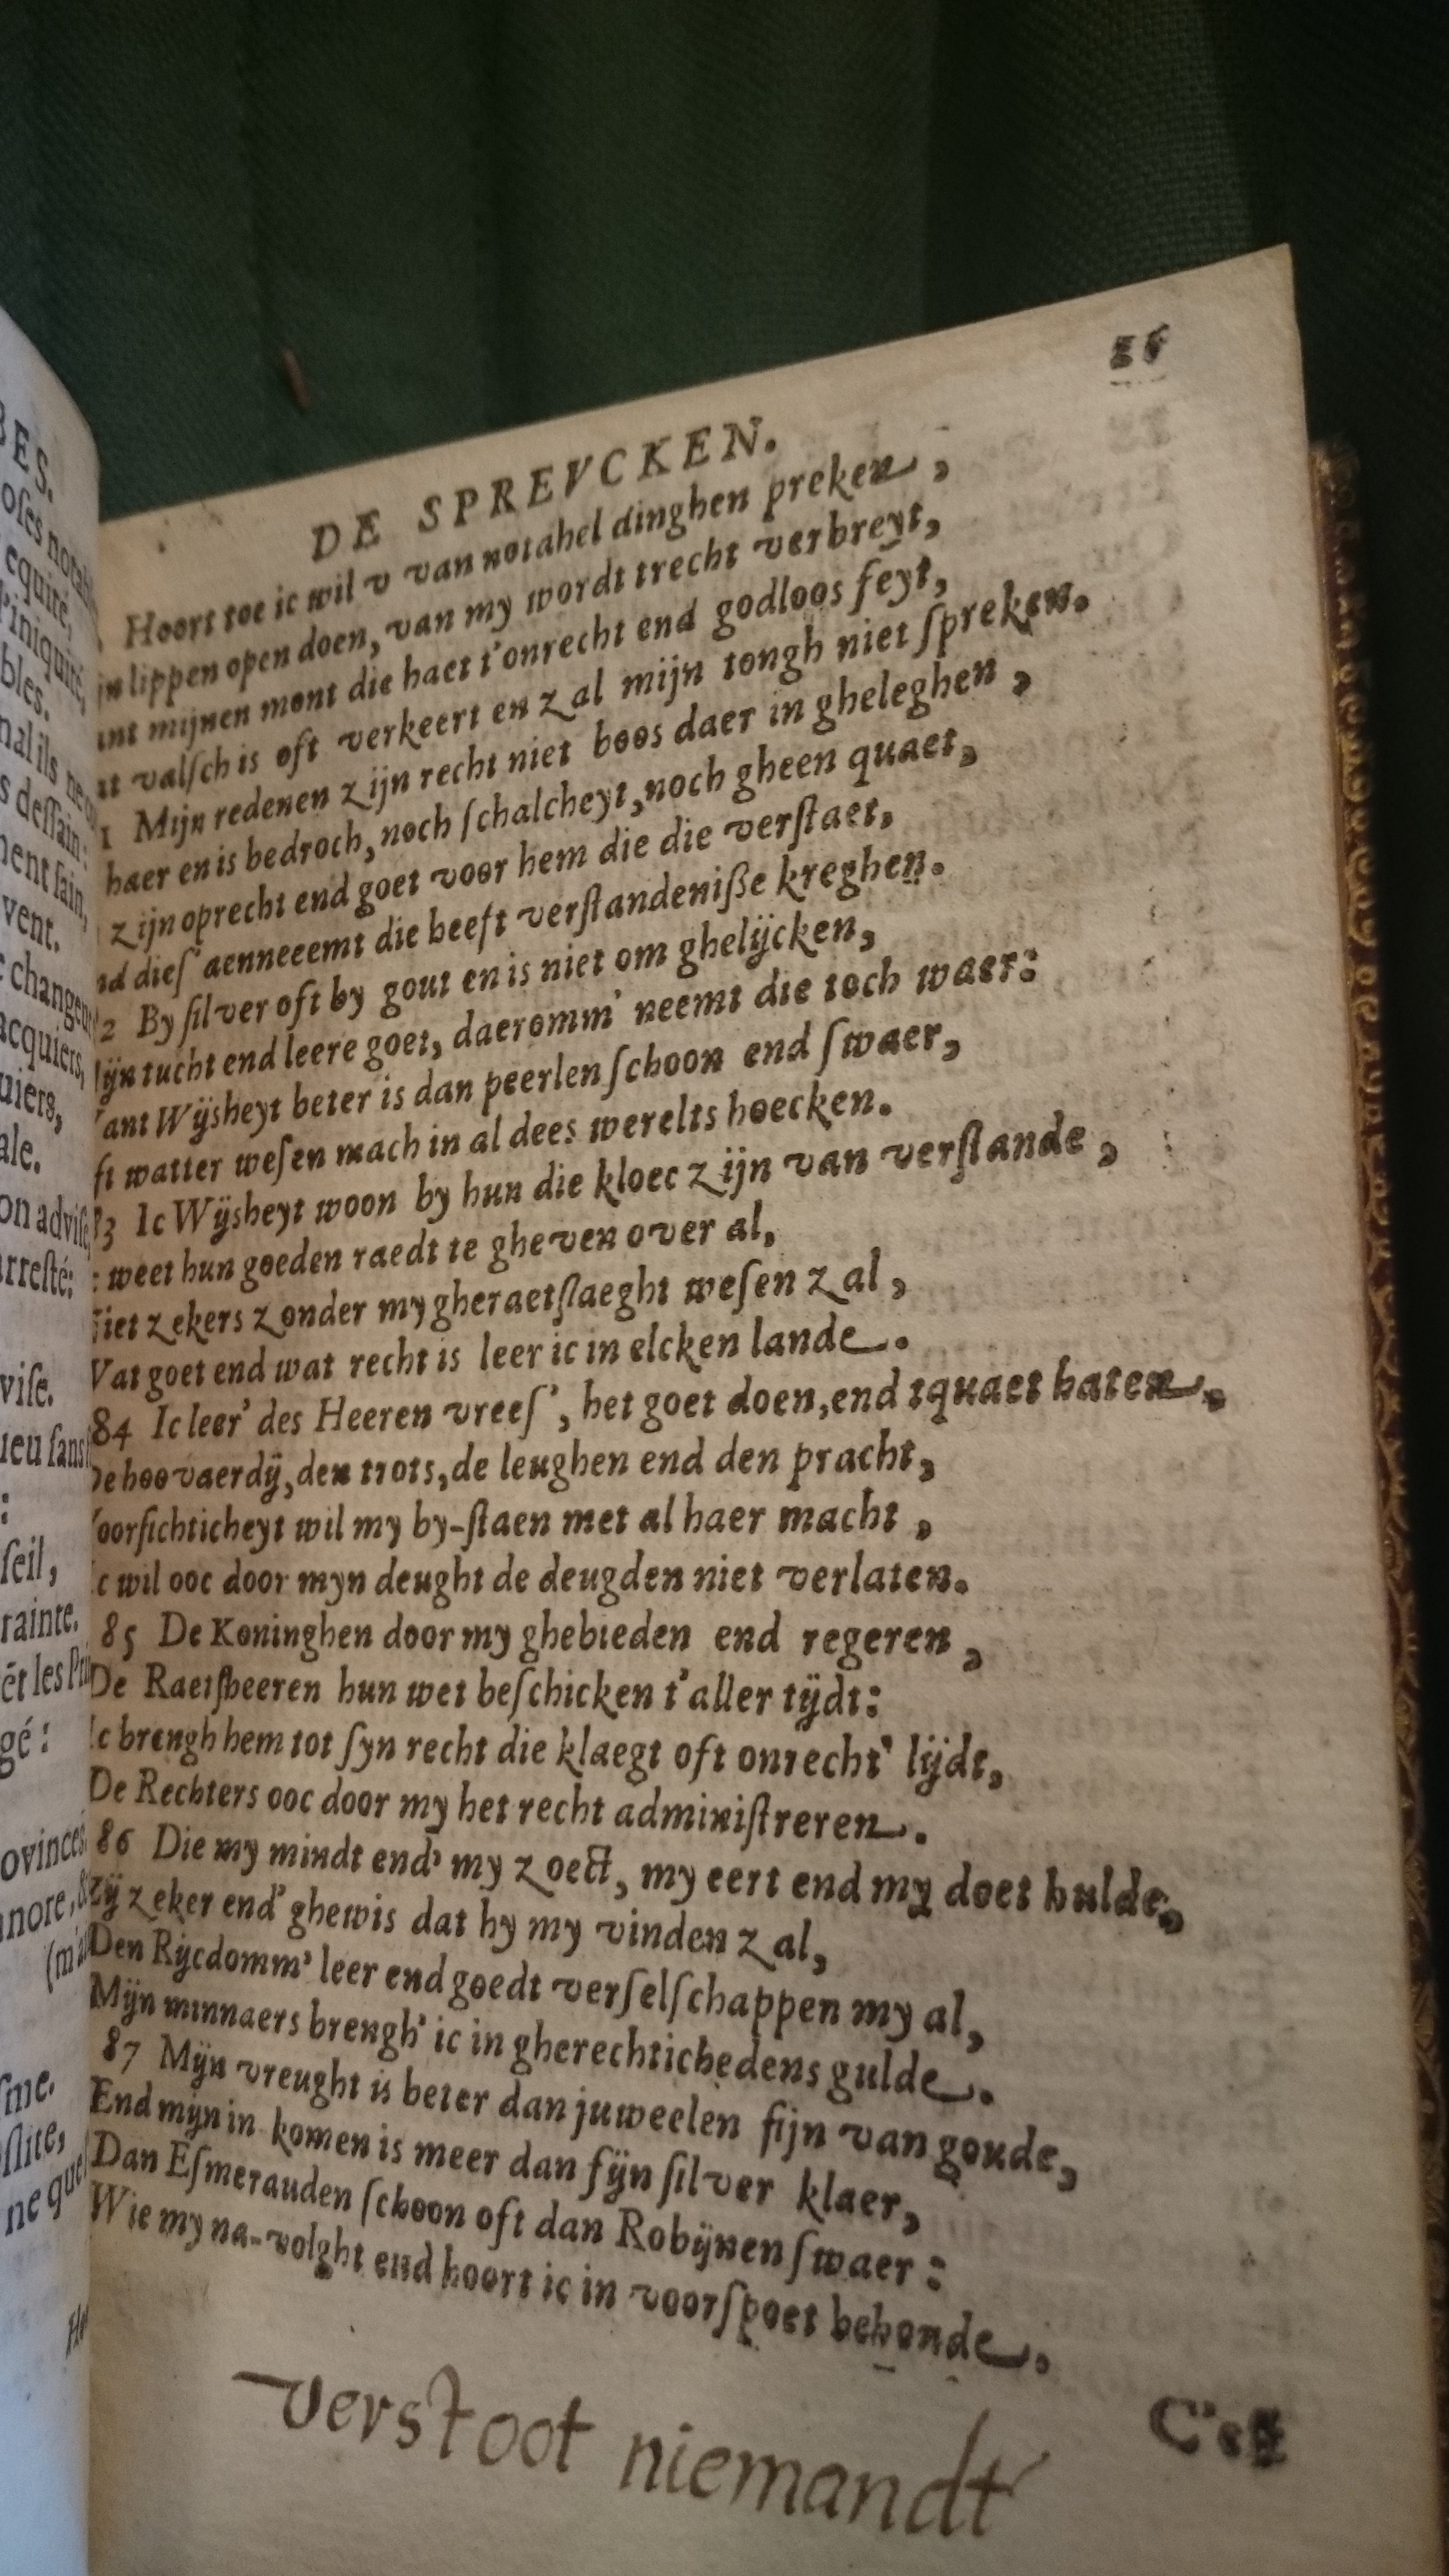 BES.
oſes notabl
equité,
l'iniquité,
bles.
deſſain:
nent ſain,
vent.
change
acquiers,
uiers,
ale.
on adviſe
rreſté:
viſe.
ieu ſans
:
ſeil,
rainte.
ét les Pri
gé:
ovinces
nore,
ſme.
ſlite,
ne que
DE SPREVCKEN.
Hoort toe ic wil v van notabel dinghen preken,
jn lippen open doen, van my wordt trecht verbreyt,
ant mijnen mont die haet t'onrecht end godloos feyt,
at valſch is oft verkeert en zal mijn tongh niet ſpreken.
1 Mijn redenen zijn recht niet boos daer in gheleghen,
haer en is bedroch, noch ſchalcheyt, noch gheen quaet,
zijn oprecht end goet voor hem die die verſtaet,
nd dieſ' aenneeemt die heeft verſtandeniße kreghen.
2 By ſilver oft by gout en is niet om ghelijcken,
ijn tucht end leere goet, daeromm' neemt die toch waer:
ant Wijsheyt beter is dan peerlen ſchoon end ſwaer,
ft watter weſen mach in al dees werelts hoecken.
3 Ic Wijsheyt woon by hun die kloec zijn van verſtande,
weet hun goeden raedt te gheven over al,
iet zekers zonder my gheraetſlaeght weſen zal,
Wat goet end wat recht is leer ic in elcken lande.
84 Ic leer' des Heeren vreeſ', het goet doen, end tquaet haten,
De hoovaerdij, den trots, de leughen end den pracht,
Voorſichticheyt wil my by-ſtaen met al haer macht,
Ic wil ooc door myn deught de deugden niet verlaten.
85 De Koninghen door my ghebieden end regeren,
De Raetſheeren hun wet beſchicken t'aller tijdt:
Ic brengh hem tot ſyn recht die klaegt oft onrecht' lijdt,
De Rechters ooc door my het recht adminiſtreren.
86 Die my mindt end' my zoect, my eert end my doet hulde,
Zij zeker end' ghewis dat hy my vinden zal,
Den Rijcdomm' leer end goedt verſelſchappen my al,
Mijn minnaers brengh' ic in gherechtichedens gulde.
87 Mijn vreught is beter dan juweelen fijn van goude,
End mijn in komen is meer dan fijn ſilver klaer,
Dan Eſmerauden ſchoon oft dan Robijnen ſwaer:
Wie my na-volght end hoort ic in voorſpoet behoude.
C'eſt
verstoot niemandt